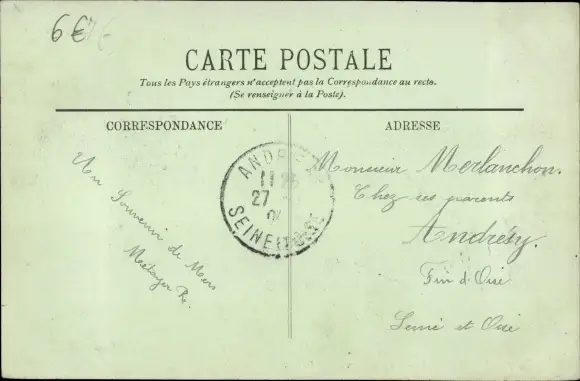 6€
CARTE POSTALE
Tous les Pays étrangers n'acceptent pas la Correspondance au recto.
(Se renseigner à la Poste).
CORRESPONDANCE
ADRESSE
Un Souvenir de Mers
ANDRESY
11 25
27
SEINE ET OISE
Monsieur Merlanchon.
Chez ses parents
Andrésy.
Fin d'Oise
Seine et Oise